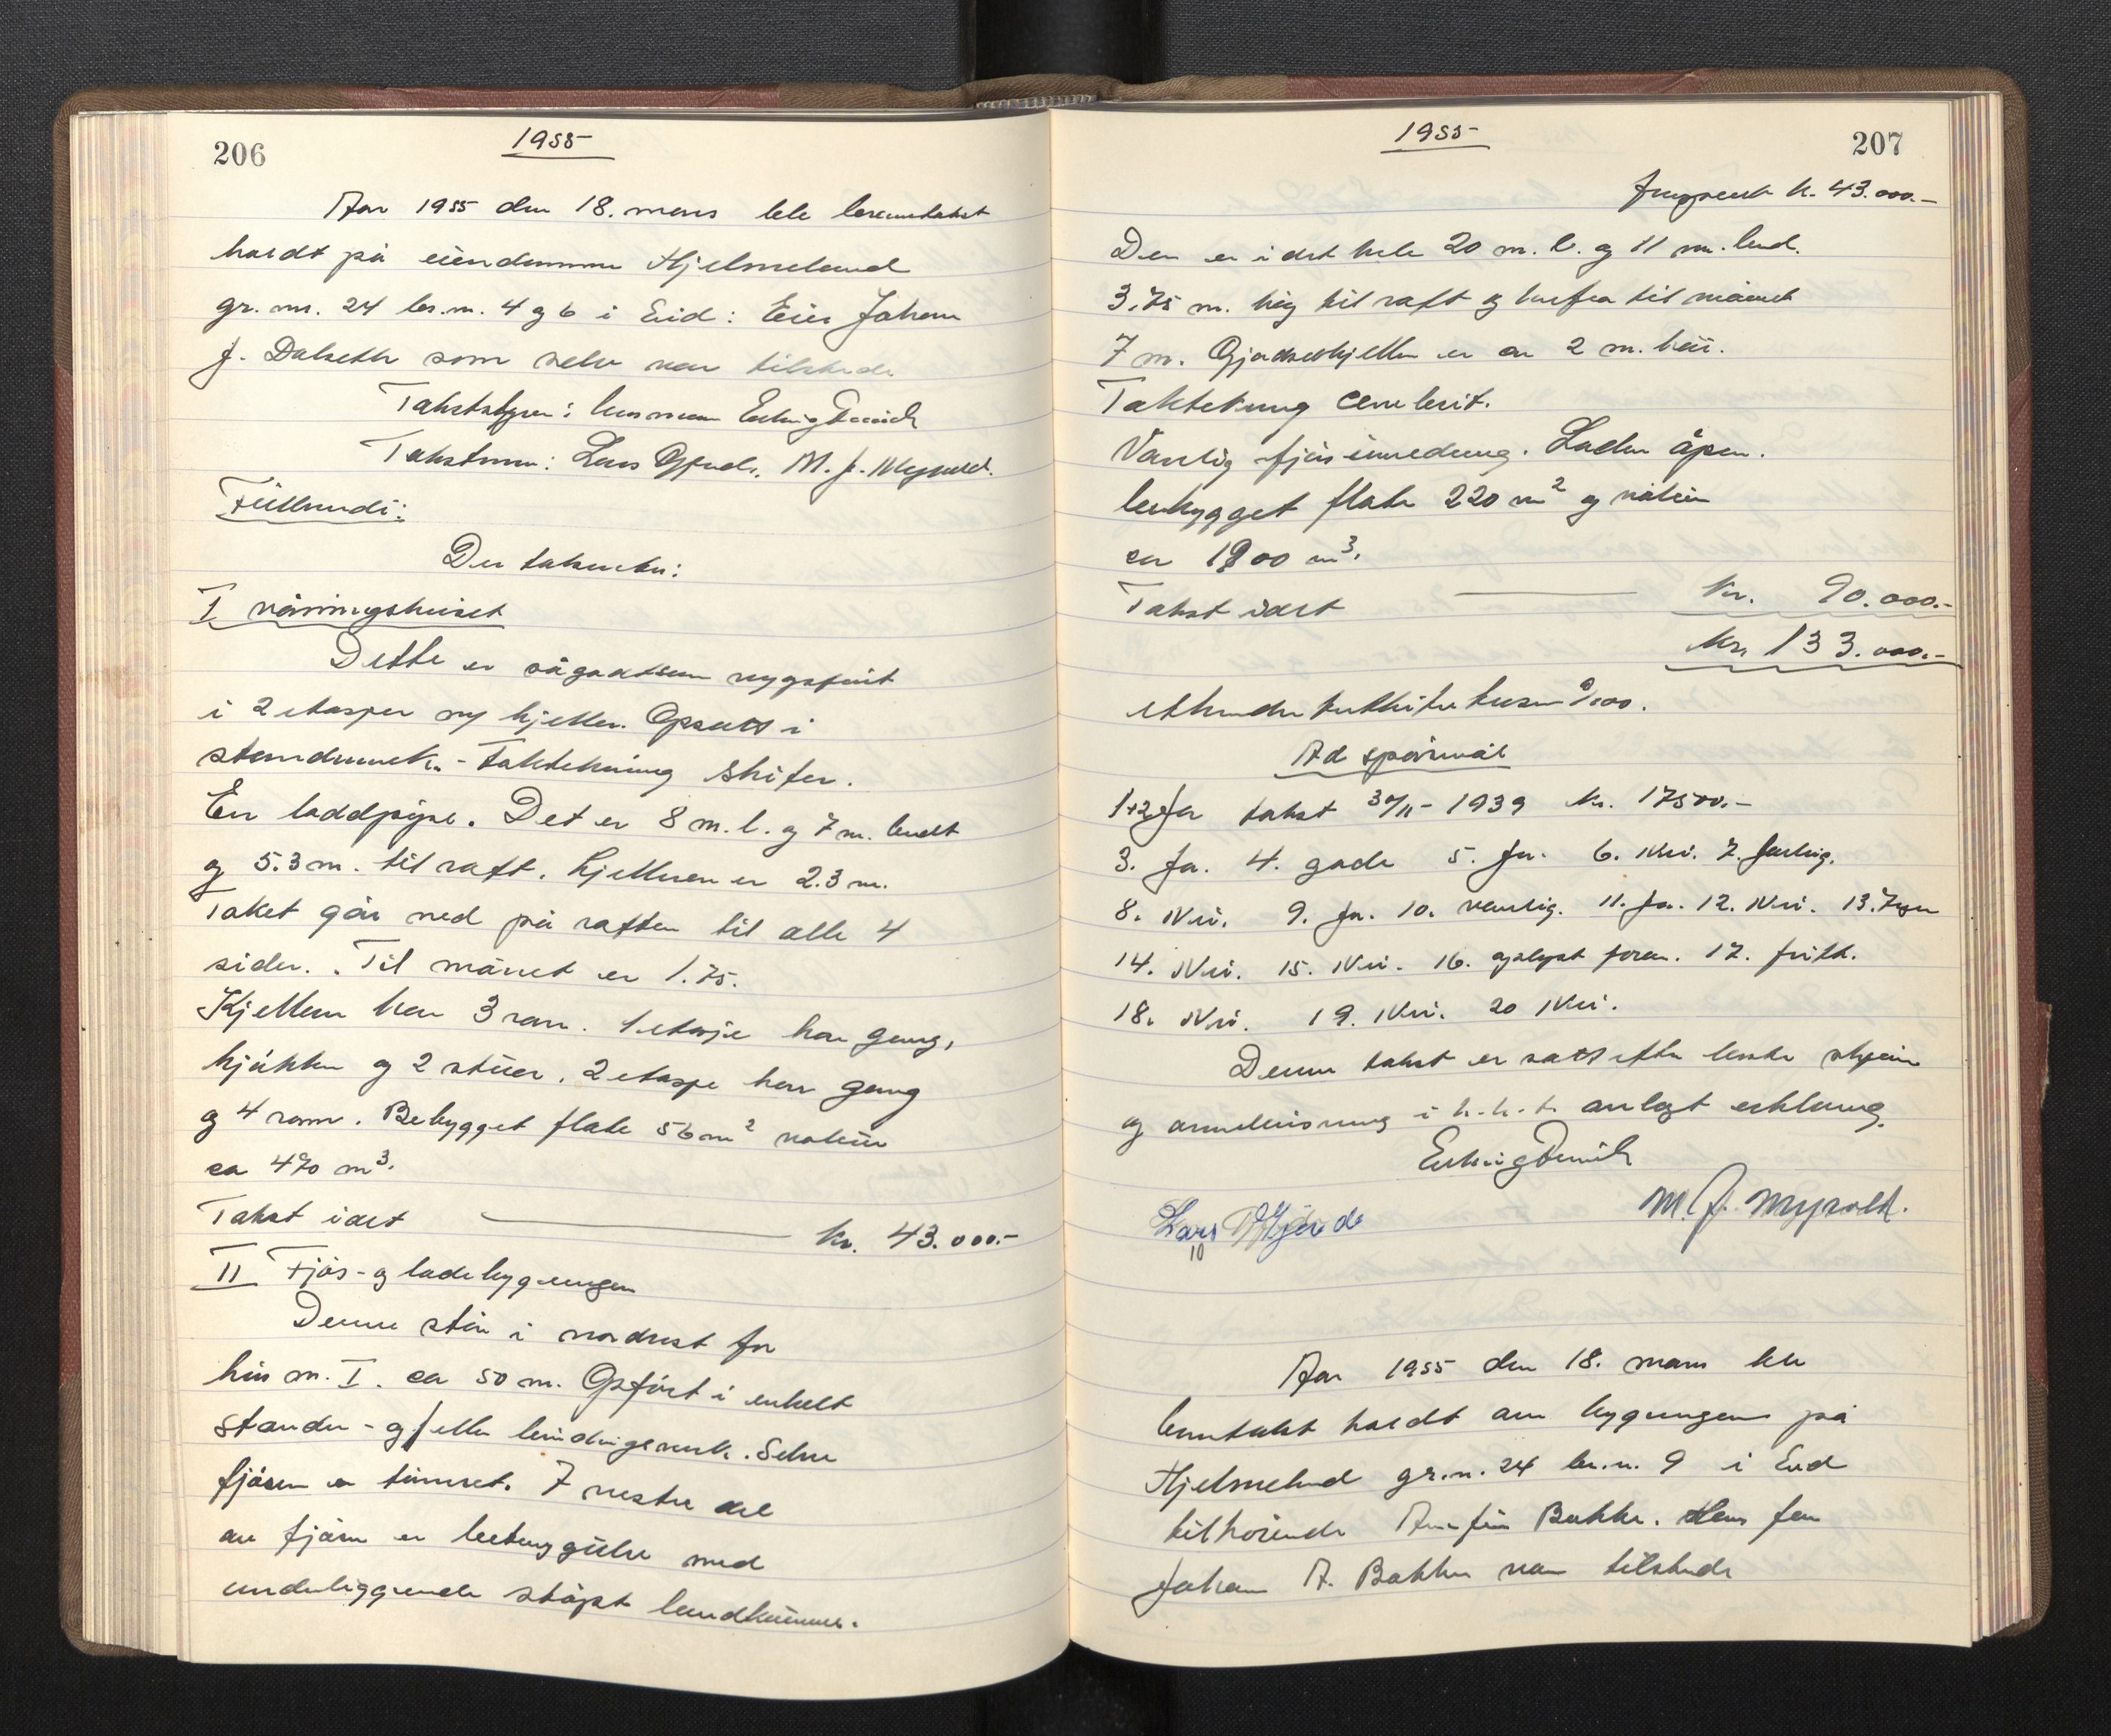 206
1955
Aar 1955 den 18. mars ble branntakst
holdt på eiendommen Hjelmeland
gr. nr. 24 br.nr. 4 og 6 i Eid: Eier Johan
J. Dalseth som selv var tilstede
Takstskjønn: lensmann Erling
Takstmenn: Lars Gjerde, M. J. Myrold.
I våningshuset
Dette er så godt som nyoppført
i 2 etasjer ny kjeller. Oppsatt i
- Taktekning skifer.
En loddpipe. Det er 8 m. l. og 7 m. bredt
og 5.3 m. til raft. Kjelleren er 2.3 m.
Taket går ned på raften til alle 4
sider. Til mønet er 1.75.
Kjelleren har 3 rom. 1 etasje har gang,
kjøkken og 2 stuer. 2 etasje har gang
og 4 rom. Bebygget flate 56 m² volum
ca 470 m³.
Takst idet kr. 43.000.-
II Fjøs- og ladebygningen
Denne står i nordvest for
hus nr. I. ca 50 m. Oppført i enkelt
stander- og bindingsverk. Selve
fjøsen er tømret. I vestre del
av fjøsen er med
underliggende støpt landkummer.
207
1955
Fremført kr. 43.000.-
Den er i det hele 20 m. l. og 11 m. bred.
3.75 m. høg til raft og herfra til mønet
7 m. Gjødselkjeller er av 2 m. høi.
Taktekning
Vanlig fjøsinnredning. Laden åpen.
bebygget flate 220 m² og volum
ca 1800 m³.
Takst idet kr. 90.000.-
kr. 133.000.-
etthundreogtrettitretusen 0/00.
Ad spørsmål
1+2 Før takst 30/11-1939 kr. 17500.-
3. Ja. 4. gode 5. Ja. 6. Nei. 7. farlig.
8. Nei. 9. Ja. 10. vanlig. 11. Ja. 12. Nei. 13.
14. Nei. 15. Nei. 16. oplyst foran. 17. fritt.
18. Nei. 19. Nei. 20 Nei.
Denne takst er satt efter beste skjønn
og overbevisning i h.h.t. avlagt erklæring.
Erling
Lars Gjerde M. J. Myrold.
10
Aar 1955 den 18. mars ble
branntakst holdt over bygningene på
Hjelmeland gr.nr. 24 br.nr. 9 i Eid
tilhørende Arnfinn Bakke. Hans far
Johan A. Bakke var tilstede